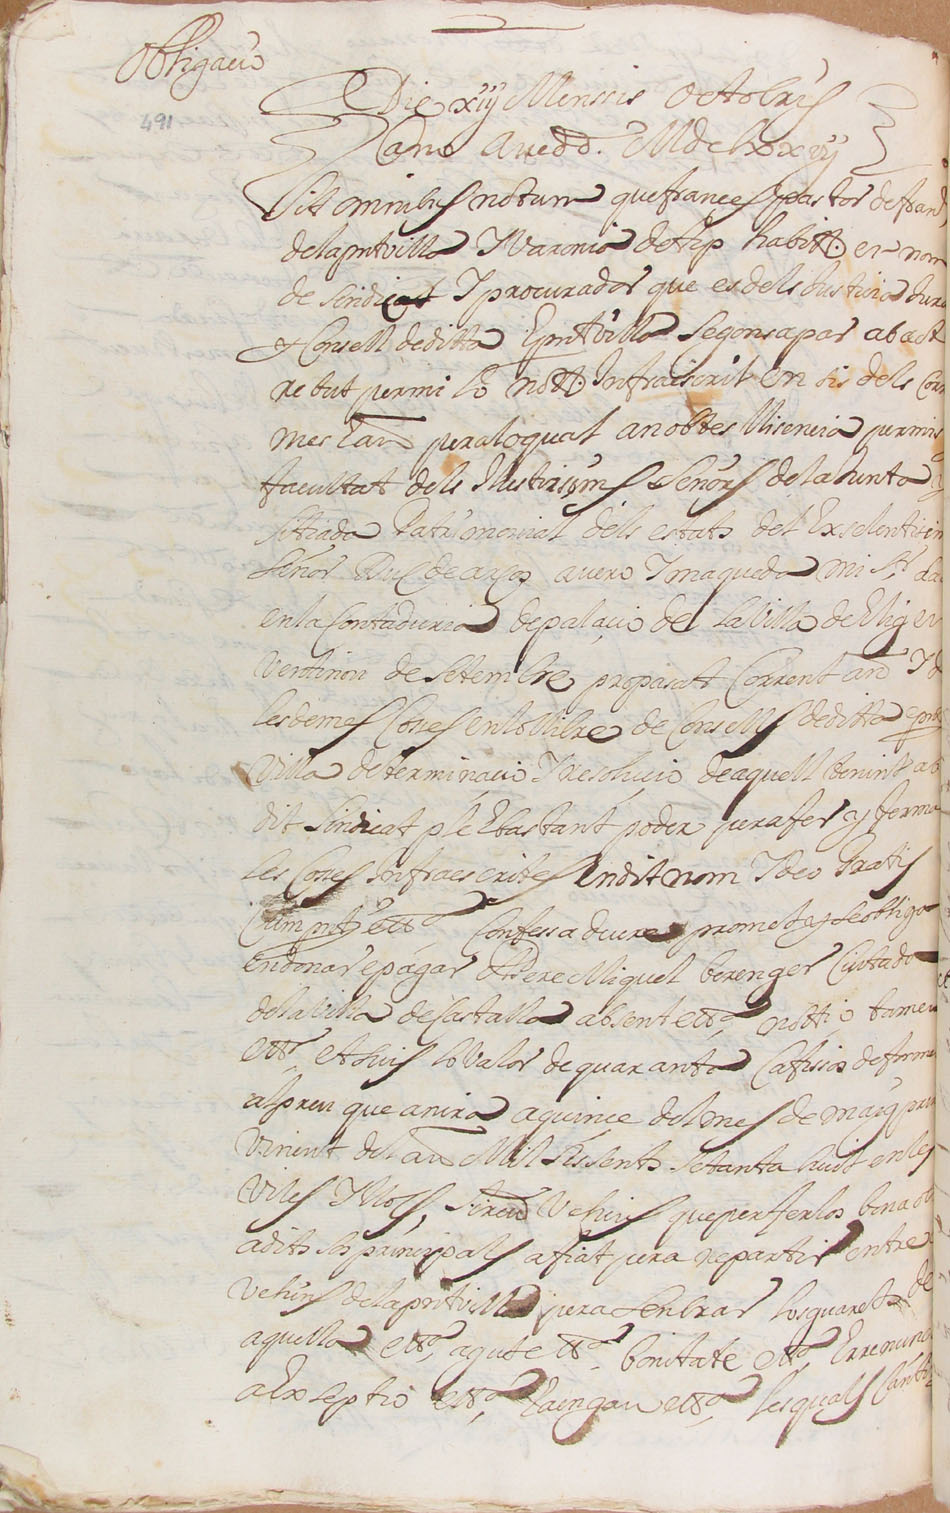 Obligacio
491
Die xiij Mensis Octobris
anno a nat dd. MDCLxxvij
Sit omnibus notum que frances pastor de fran
de la pnt villa Y Varonia de Asp habitt. en nom
de sindicat Y procurador que es dels Justicia Jura
y Consell de ditta E pnt villa segons apar ab acte
rebut per mi lo nott. Infraescrit en sis dels Corr
mes E an per a lo qual a nobtes llisencia permis
facultat dels Illustrissims Señors de la Junta
sitiada Patrimonial dels estats del Exselentisim
Señor Duc de arcos avero Y maqueda mi Sr. da
en la Contaduria de palacio de la Villa de Elig en
Ventinou de Setembre propasatt Corrent an Y de
les demes Coses en lo llibre de Consells de ditta E pnt
Villa determinacio Y resolucio de aquell tenint ab
dit sindicat ple E bastant poder pera fer y fermar
les Coses Infraescrites En dit nom Y deo Gratis
Cum pnti etta. Confessa deure promet y se obliga
en donar e pagar A Pere Miquel berenger Ciutada
de la Villa de Castalla absent etta. notti. tamen
etta. et suis lo Valor de quaranta Cafisos de forme
al preu que anira a quince del mes de maig prim
Vinent del an Mil sissents setanta huit en les
Viles Y llochs Circum Vehins que per fer los bona ob
a dits sos principals a fiat pera repartir entre
Vehins de la pnt villa pera senbrar los quarets de
aquella etta. agute etta. bonitate etta. E renuncia
a Exseptio etta. E aengan etta. les quals Canti